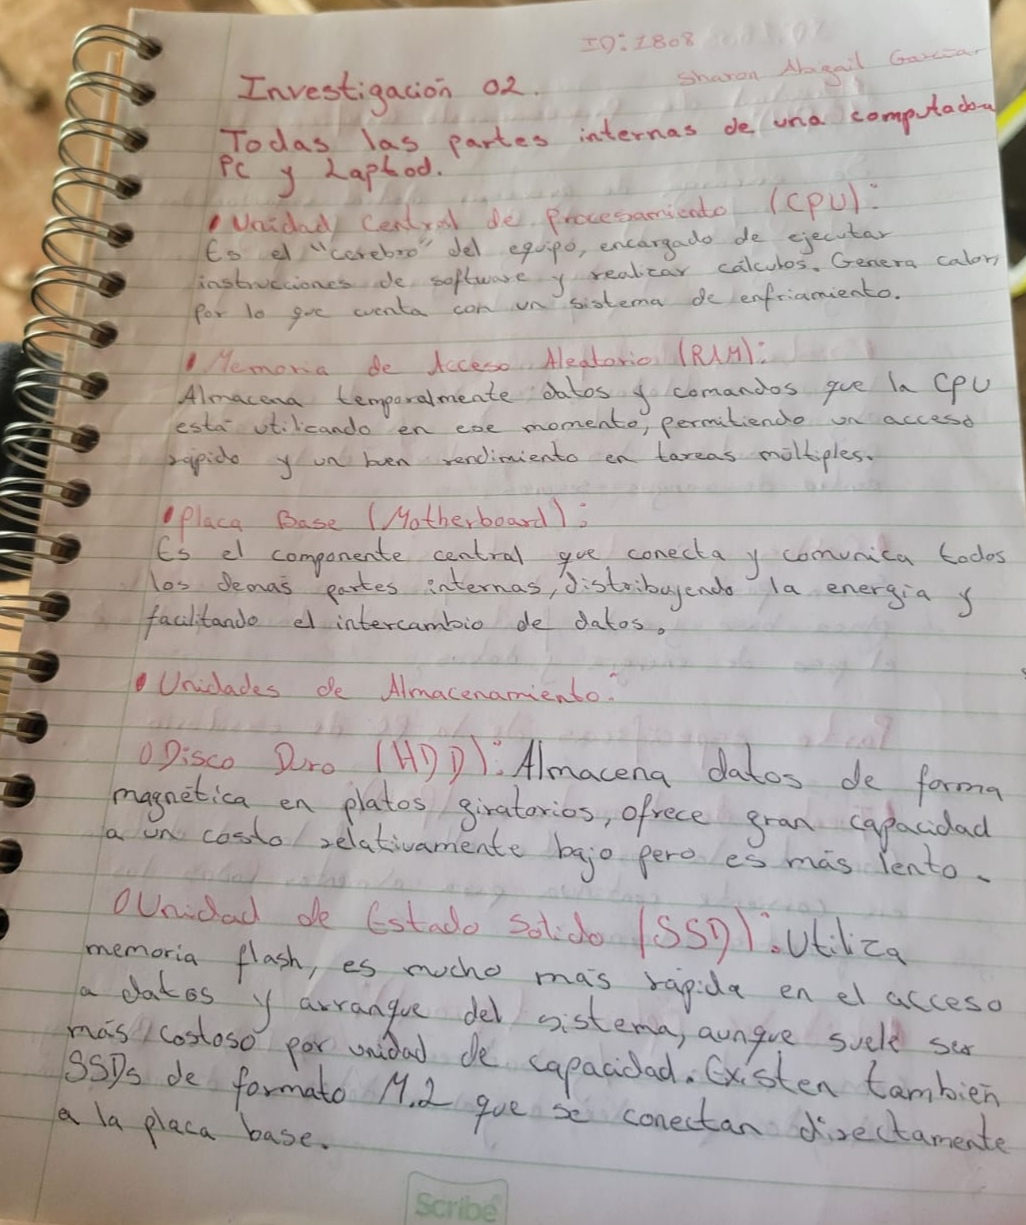 ID: 1808
Sharon Abigail Garcia
Investigación 02.
Todas las partes internas de una computadora
PC y Laptod.
• Unidad Central de Procesamiento (CPU):
Es el "cerebro" del equipo, encargado de ejecutar
instrucciones de software y realizar cálculos. Genera calor,
por lo que cuenta con un sistema de enfriamiento.
• Memoria de Acceso Aleatorio (RAM):
Almacena temporalmente datos y comandos que la CPU
está utilizando en ese momento, permitiendo un acceso
rapido y un buen rendimiento en tareas múltiples.
• Placa Base (Motherboard):
Es el componente central que conecta y comunica todos
los demás partes internas, distribuyendo la energía y
facilitando el intercambio de datos.
• Unidades de Almacenamiento:
O Disco Duro (HDD): Almacena datos de forma
magnética en platos giratorios, ofrece gran capacidad
a un costo relativamente bajo pero es más lento.
O Unidad de Estado Solido (SSD): Utiliza
memoria flash, es mucho más rápida en el acceso
a datos y arranque del sistema, aunque suele ser
más costoso por unidad de capacidad. Existen también
SSDs de formato M.2 que se conectan directamente
a la placa base.
Scribe